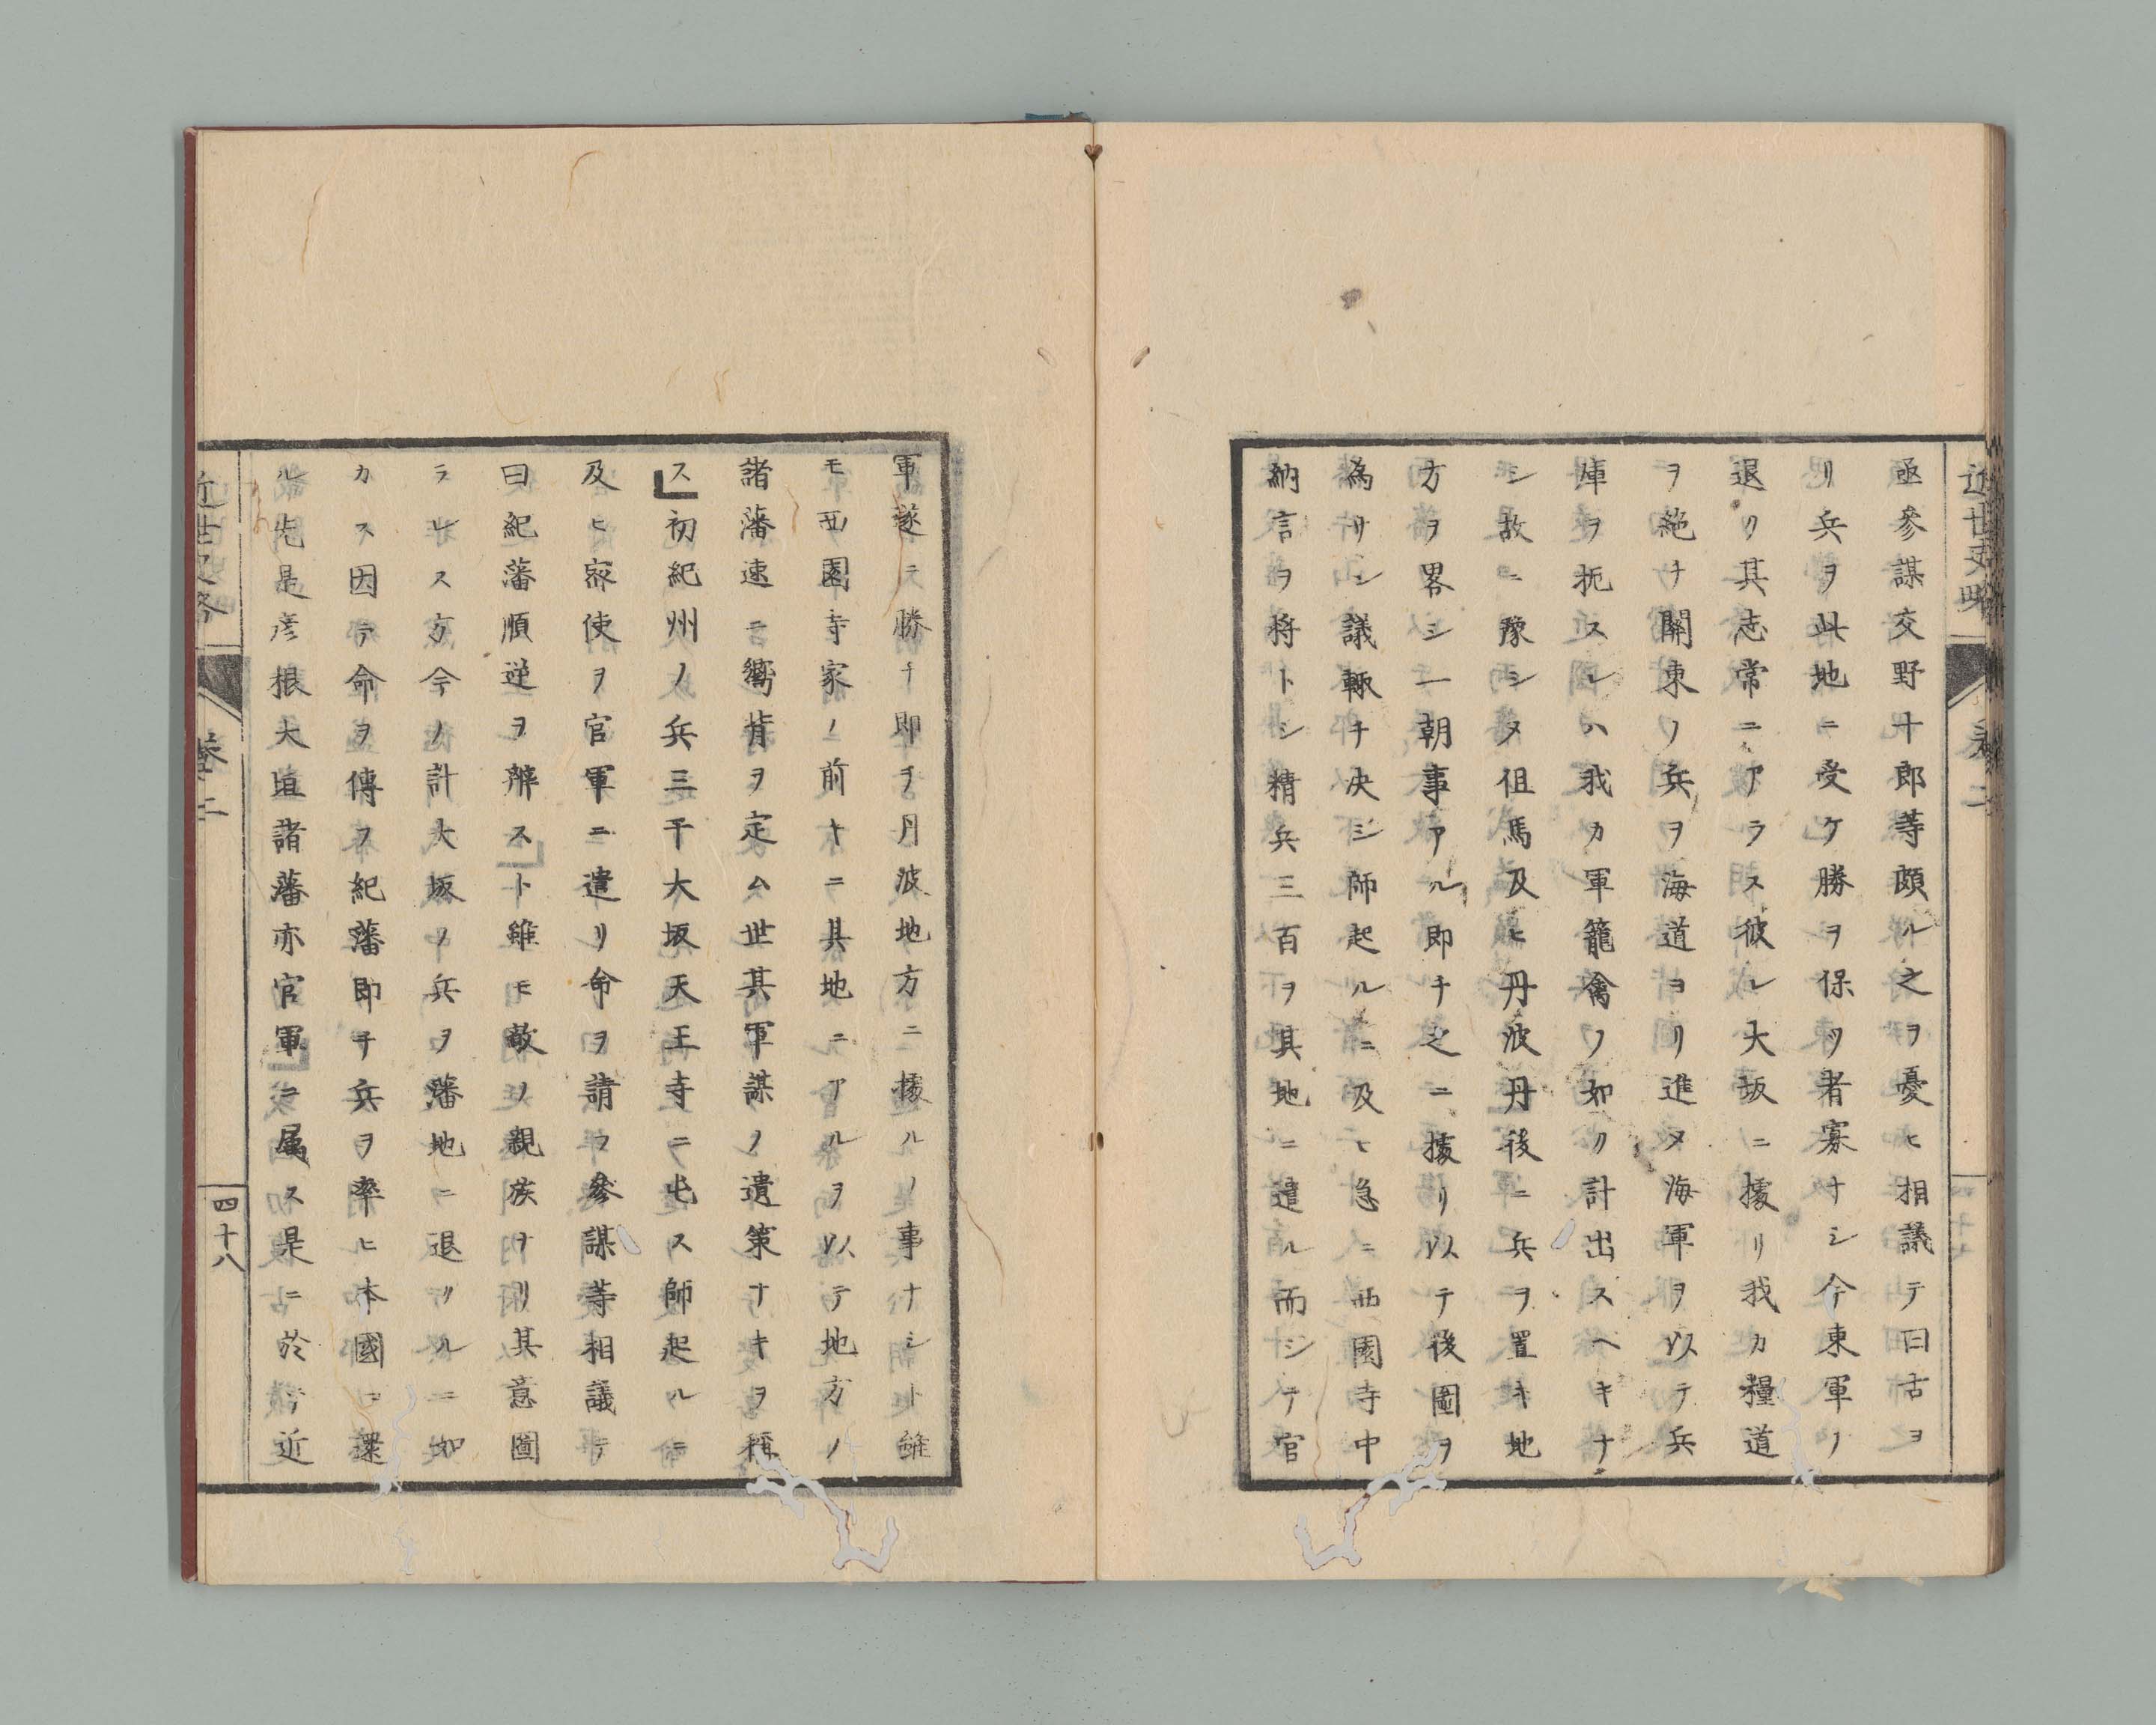 近世史略
卷二
亟參謀交野十郎等頗ル之ヲ憂ヒ相議テ曰古ヨ
リ兵ヲ此地ニ受ケ勝ヲ保ツ者寡ナシ今東軍ノ
退リ其志常ニアラス彼レ大坂ニ據リ我カ糧道
ヲ絶ナ關東ノ兵ヲ海道ヨリ進メ海軍ヲ以テ兵
庫ヲ扼スレハ我カ軍籠禽ノ如ク計出スヘキナ
シ故ニ豫シメ徂馬及ヒ丹波丹後ニ兵ヲ置キ地
方ヲ畧シ一朝事アル即チ之ニ據リ以テ後圖ヲ
為リシ議輙チ决シ師起ルニ及ヒ急ニ西園寺中
納言ヲ将トシ精兵三百ヲ其地ニ遣ル而シテ官
軍遂ニ勝チ即チ丹波地方ニ據ルノ事ナシト雖
モ西園寺家ノ前キニ其地ニアルヲ以テ地方ノ
諸藩速ニ嚮背ヲ定ム世其軍謀ノ遺策ナキヲ稱
ス初紀州ノ兵三千大坂天王寺ニ屯ス師起ルニ
及ヒ密使ヲ官軍ニ遣リ命ヲ請フ參謀等相議テ
曰紀藩順逆ヲ辨スト雖モ敵ノ親族ナリ其意圖
ラレス方今ノ計大坂ノ兵ヲ藩地ニ退リルニ如
カス因テ命ヲ傳フ紀藩即チ兵ヲ率ヒ本國ニ還
ル先是彦根大垣諸藩亦官軍ニ属ス是ニ於テ近
近世史略
卷二
四十八